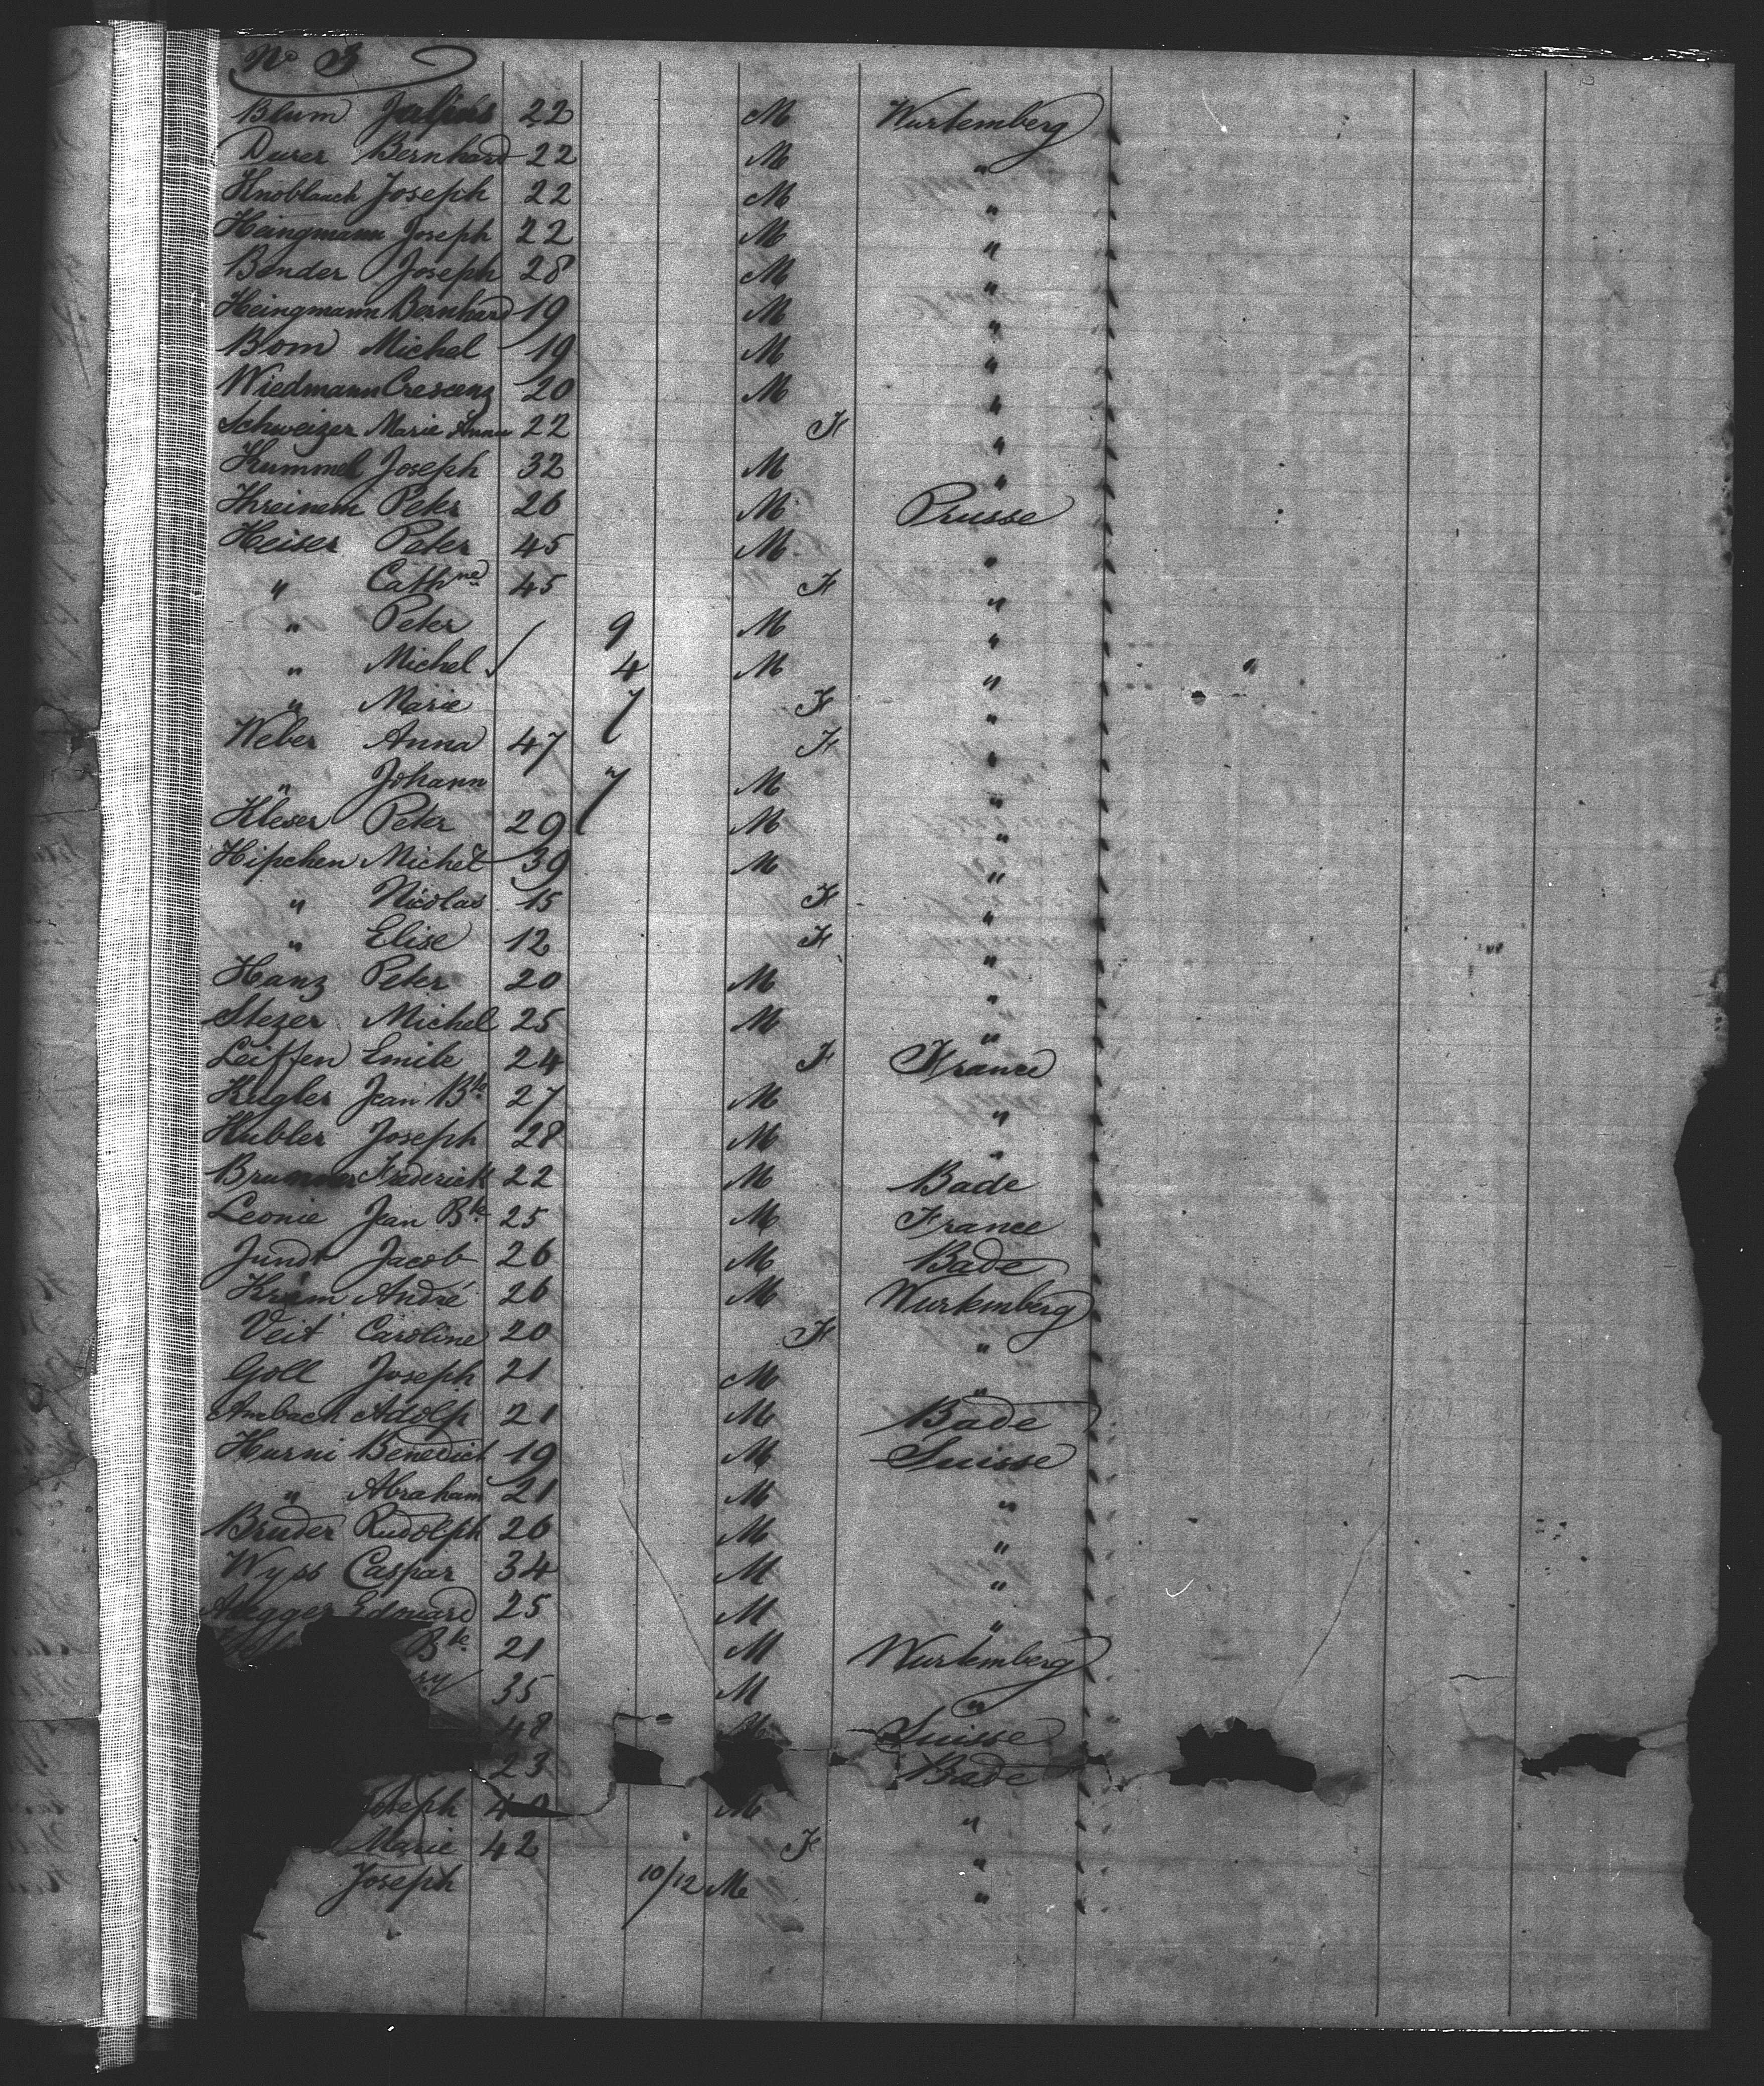 No 3
Blum Julius 22 M Wurtemberg
Durer Bernhard 22 M "
Knoblauch Joseph 22 M "
Heingmann Joseph 22 M "
Bender Joseph 28 M "
Heingmann Bernhard 19 M "
Bom Michel 19 M "
Wiedmann Crescenz 20 M "
Schweizer Marie Anna 22 F "
Kummel Joseph 32 M "
Peter 26 M Prusse
Heiser Peter 45 M "
" Cathne 45 F "
" Peter 9 M "
" Michel 4 M "
" Marie 7 F "
Weber Anna 47 F "
" Johann 7 M "
Kleser Peter 29 M "
Hipchen Michel 39 M "
" Nicolas 15 F "
" Elise 12 F "
Hanz Peter 20 M "
Stezer Michel 25 M "
Leiffen Emile 24 F France
Kugler Jean Bte 27 M "
Hubler Joseph 28 M "
Brunner Frederick 22 M Bade
Leonie Jean Bte 25 M France
Jundt Jacob 26 M Bade
Kram André 26 M Wurtemberg
Veit Caroline 20 F "
Goll Joseph 21 M "
Ambach Adolf 21 M Bade
Hurni Benedict 19 M Suisse
" Abraham 21 M "
Bruder Rudolph 26 M "
Wyss Caspar 34 M "
Edward 25 M "
Bte 21 M Wurtemberg
35 M "
48 M Suisse
23 Bade
Joseph 40 M "
Marie 42 F "
Joseph 10/12 M "